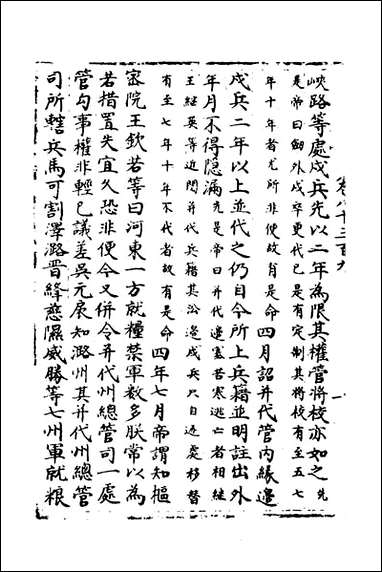 峽路等處戍兵先以二年為限其權管將校亦如之先
是帝曰御外戍卒更代已是有定制其將校有至五七
年十年者尤所非便故有是命四月詔并代管内緣邊
戍兵二年以上並代之仍自今所上兵籍並明註出外
年月不得隱漏先是帝曰并代邊寨苦寒逃亡者相繼
王經英等近閱并代兵籍其公邊戍兵只自近處移替
有至七年十年不代者故有是命四年七月帝謂知樞
宻院王欽若等曰河東一方就糧禁軍數多朕常以為
若措置失宜久恐非便今又併令并代州總管司一處
管勾事權非輕已議差吳元扆知潞州其并代州總管
司所轄兵馬可割澤潞晋絳慈隰威勝等七州軍就粮